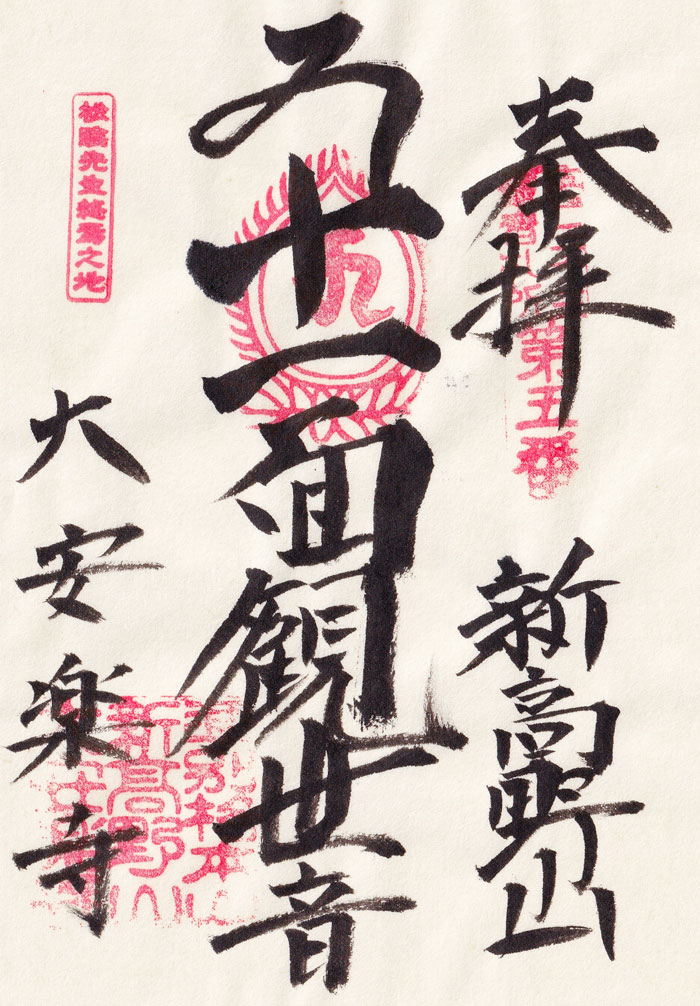 奉拝
新高野山
第五番
十一面観世音
松陰先生終焉之地
大安楽寺
新高野山